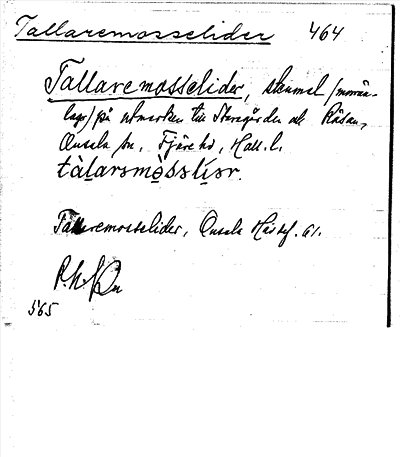 Tallaremosselider 464
Tallaremosselider, skumel (morän-
lager) på utmarken till Storegården och Råsan,
Onsala sn, Fjäre hd, Hall. l.
tàlarsmòsslìsr.
Tallaremosselider, Onsala Hds hf. 61.
565